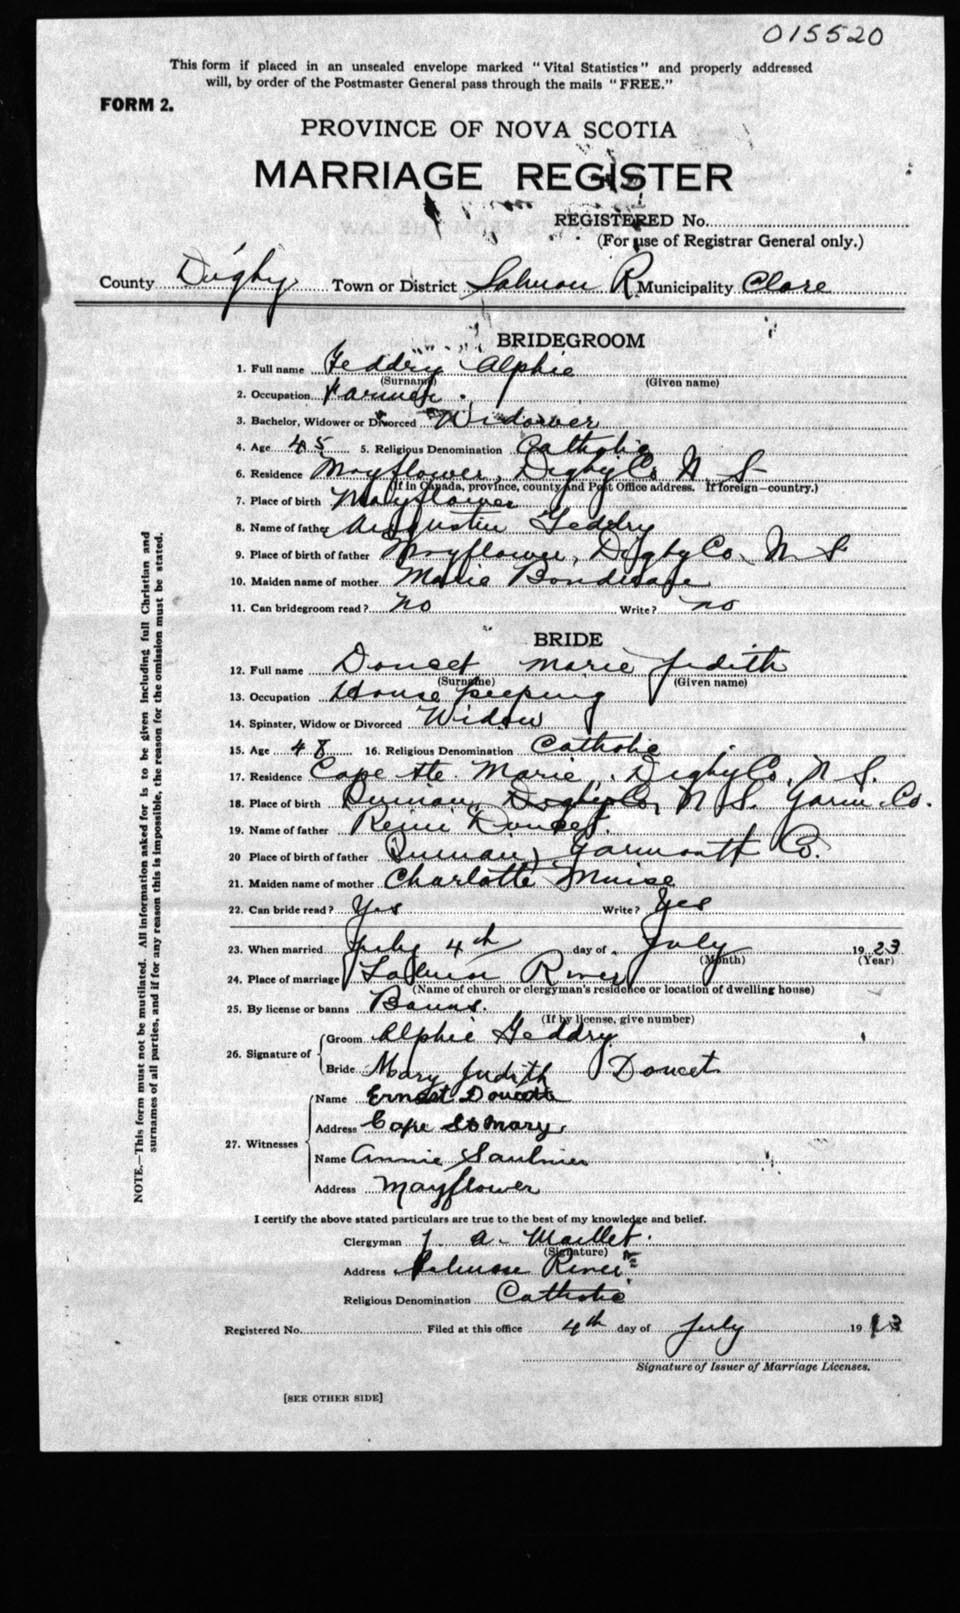 015520
This form if placed in an unsealed envelope marked "Vital Statistics" and properly addressed
will, by order of the Postmaster General pass through the mails "FREE."
FORM 2.
PROVINCE OF NOVA SCOTIA
MARRIAGE REGISTER
REGISTERED No.
(For use of Registrar General only.)
County Digby Town or District Salmon R Municipality Clare
BRIDEGROOM
1. Full name Geddry Alphie
(Surname) (Given name)
2. Occupation Farmer.
3. Bachelor, Widower or Divorced Widower
4. Age 45 5. Religious Denomination Catholic
6. Residence Mayflower, Digby Co N S
(If in Canada, province, county and Post Office address. If foreign—country.)
7. Place of birth Mayflower
8. Name of father Augustin Geddry
9. Place of birth of father Mayflower, Digby Co. N S
10. Maiden name of mother Marie
11. Can bridegroom read? no Write? no
BRIDE
12. Full name Doucet Marie Judith
(Surname) (Given name)
13. Occupation House keeping
14. Spinster, Widow or Divorced Widow
15. Age 48 16. Religious Denomination Catholic
17. Residence Cape Ste. Marie, Digby Co. N S.
18. Place of birth Quinan, Digby Co, N S. Yarm. Co.
19. Name of father Remi Doucet.
20 Place of birth of father Quinan, Yarmouth Co.
21. Maiden name of mother Charlotte Muise
22. Can bride read? Yes Write? Yes
23. When married July 4th day of July 1923
(Month) (Year)
24. Place of marriage Salmon River
(Name of church or clergyman's residence or location of dwelling house)
25. By license or banns Banns.
(If by license, give number)
26. Signature of Groom Alphie Geddry
Bride Mary Judith Doucet
27. Witnesses Name Ernest Doucett
Address Cape St Mary
Name Annie Saulnier
Address Mayflower
I certify the above stated particulars are true to the best of my knowledge and belief.
Clergyman J. A. Maillet.
(Signature)
Address Salmon River
Religious Denomination Catholic
Registered No. Filed at this office 4th day of July 19
Signature of Issuer of Marriage Licenses.
[SEE OTHER SIDE]
NOTE.—This form must not be mutilated. All information asked for is to be given including full Christian and
surnames of all parties, and if for any reason this is impossible, the reason for the omission must be stated.